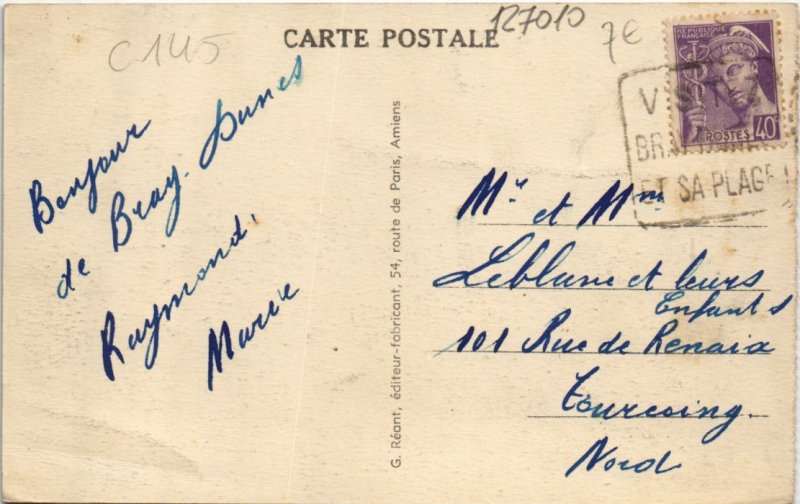 C145
CARTE POSTALE
127010
7€
REPUBLIQUE
FRANÇAISE
POSTES 40c
VISITEZ
BRAY-DUNES
ET SA PLAGE
Bonjour
de Bray-Dunes
Raymond,
Marie
G. Réant, éditeur-fabricant, 54, route de Paris, Amiens
Mr et Mme
et leurs
Enfants
101 Rue de Renaix
Tourcoing
Nord